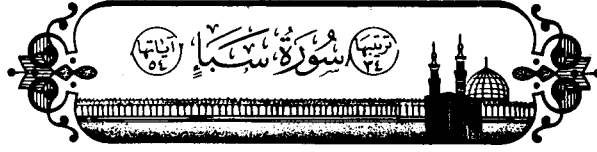 ترتيبها ٣٤ سُورَةُ سَبَإٍ آياتها ٥٤